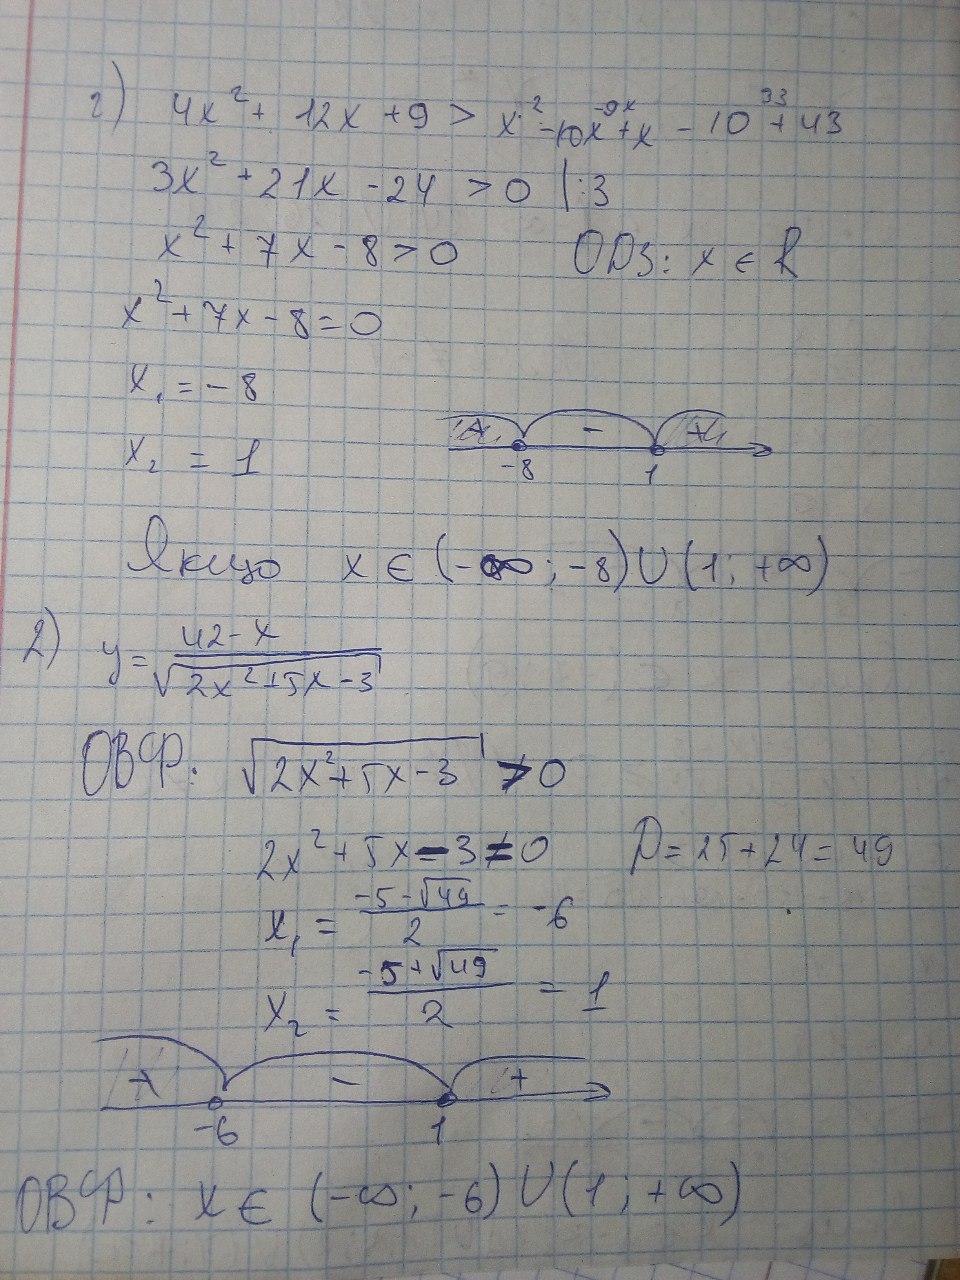 г) 4x² + 12x + 9 > x² - 10x + x - 10 + 43
-9x
33
3x² + 21x - 24 > 0 |:3
x² + 7x - 8 > 0 ОДЗ: x ∈ R
x² + 7x - 8 = 0
x₁ = -8
x₂ = 1
+ - +
-8 1
Якщо x ∈ (-∞; -8) ∪ (1; +∞)
2) y = (42 - x)/√(2x² + 5x - 3)
ОВФ: √(2x² + 5x - 3) > 0
2x² + 5x - 3 ≠ 0 D = 25 + 24 = 49
x₁ = (-5 - √49)/2 = -6
x₂ = (-5 + √49)/2 = 1
+ - +
-6 1
ОВФ: x ∈ (-∞; -6) ∪ (1; +∞)